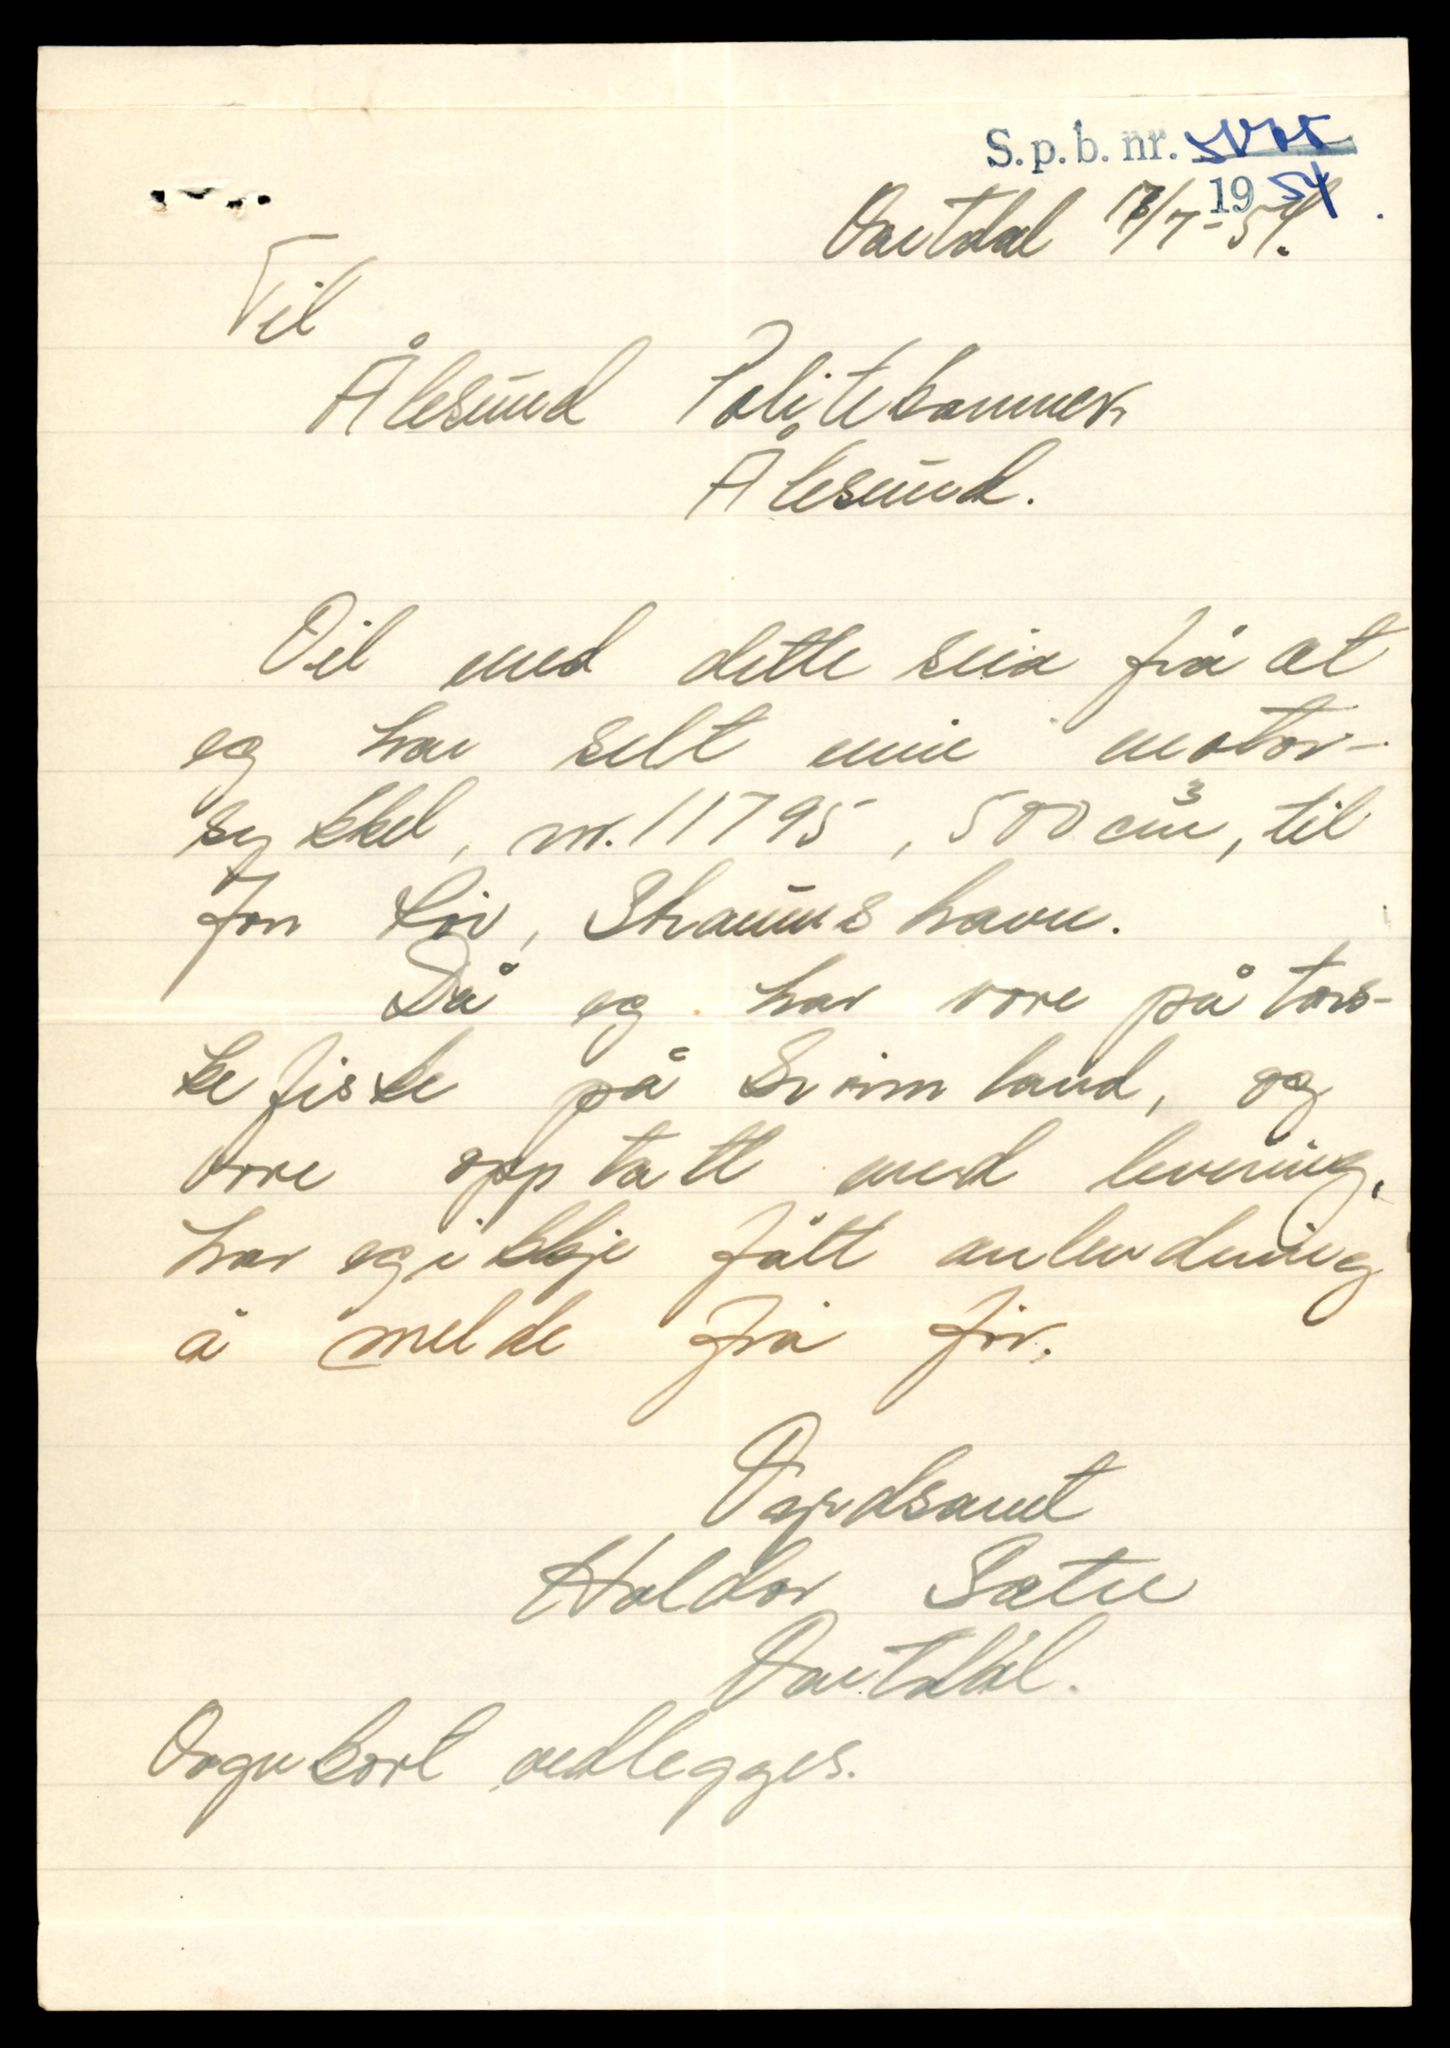 S. p. b. nr.
1954
Vartdal 17/7-54.
Til
Ålesund Politikammer,
Ålesund.
Vil med dette seia frå at
eg har selt min motor-
sykkel, nr. 11795, 500 cm³, til
Jon Liv, Shaunshavn.
Då eg har vore på tors-
kefiske på Grönnland, og
vore opptatt med levering,
har eg ikkje fått anledning
å melde frå för.
Vyrdsamt
Haldor Sætre
Vartdal.
Vognkort vedlegges.